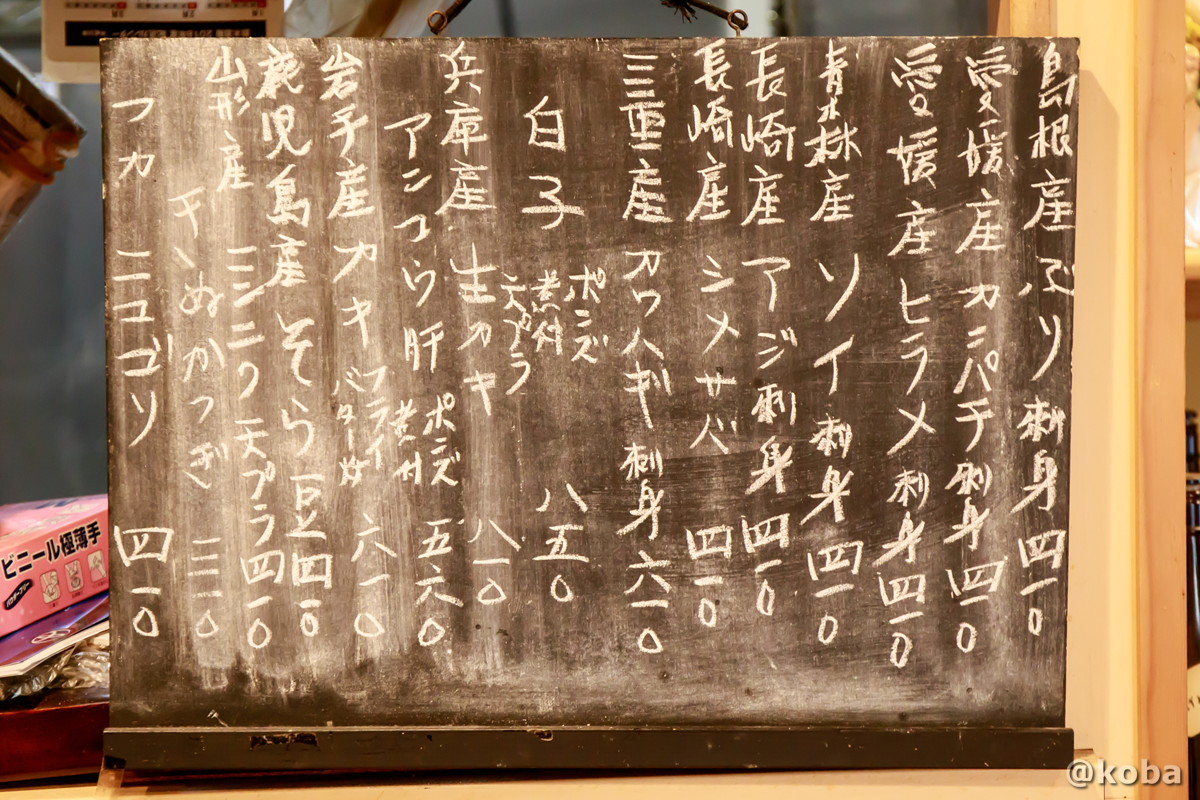 島根産ぶり刺身 四一0
愛媛産カンパチ刺身 四一0
愛媛産ヒラメ刺身 四一0
青森産ソイ刺身 四一0
長崎産アジ刺身 四一0
長崎産シメサバ 四一0
三重産カワハギ刺身 六一0
白子 ポンズ 煮付 天プラ 八五0
兵庫産生カキ 八一0
アンコウ肝 ポンズ 煮付 五六0
岩手産カキ フライ バター炒 六一0
鹿児島産そら豆 四一0
山形産ミンク天プラ 四一0
きぬかつぎ 三一0
フカニコゴリ 四一0
ビニール極薄手
@koba